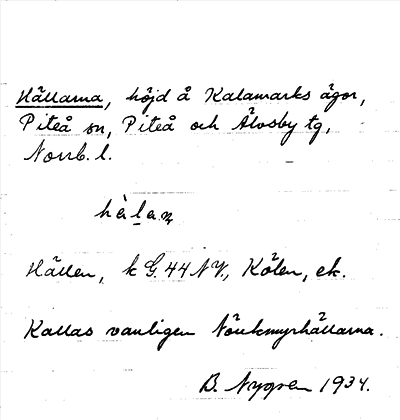 Hällarna, höjd å Kalamarks ägor,
Piteå sn, Piteå och Älvsby tg,
Norrb. l.
hὲlaṇ
Hällen, k G. 44 NV., Kölen, ek.
Kallas vanligen Nörkmyrhällarna.
B. Nygren 1934.